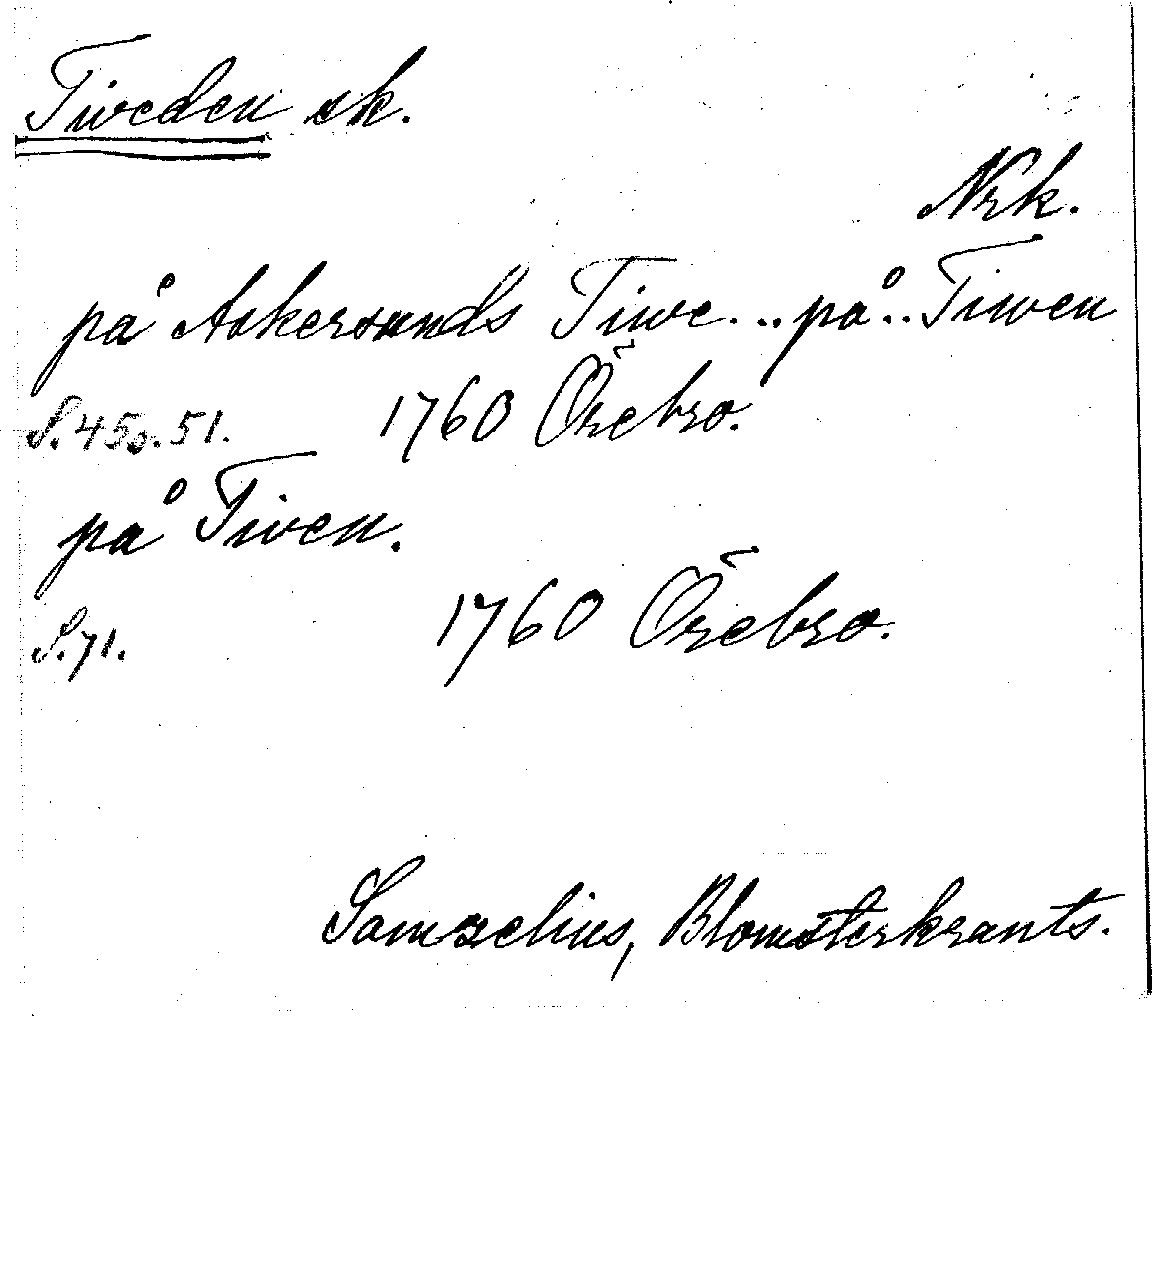 Tiveden sk.
Nrk.
på Askersunds Tiwe... på.. Tiwen
S. 45 o. 51. 1760 Örebro.
på Tiwen.
S. 71. 1760 Örebro.
Samzelius, Blomsterkrants.